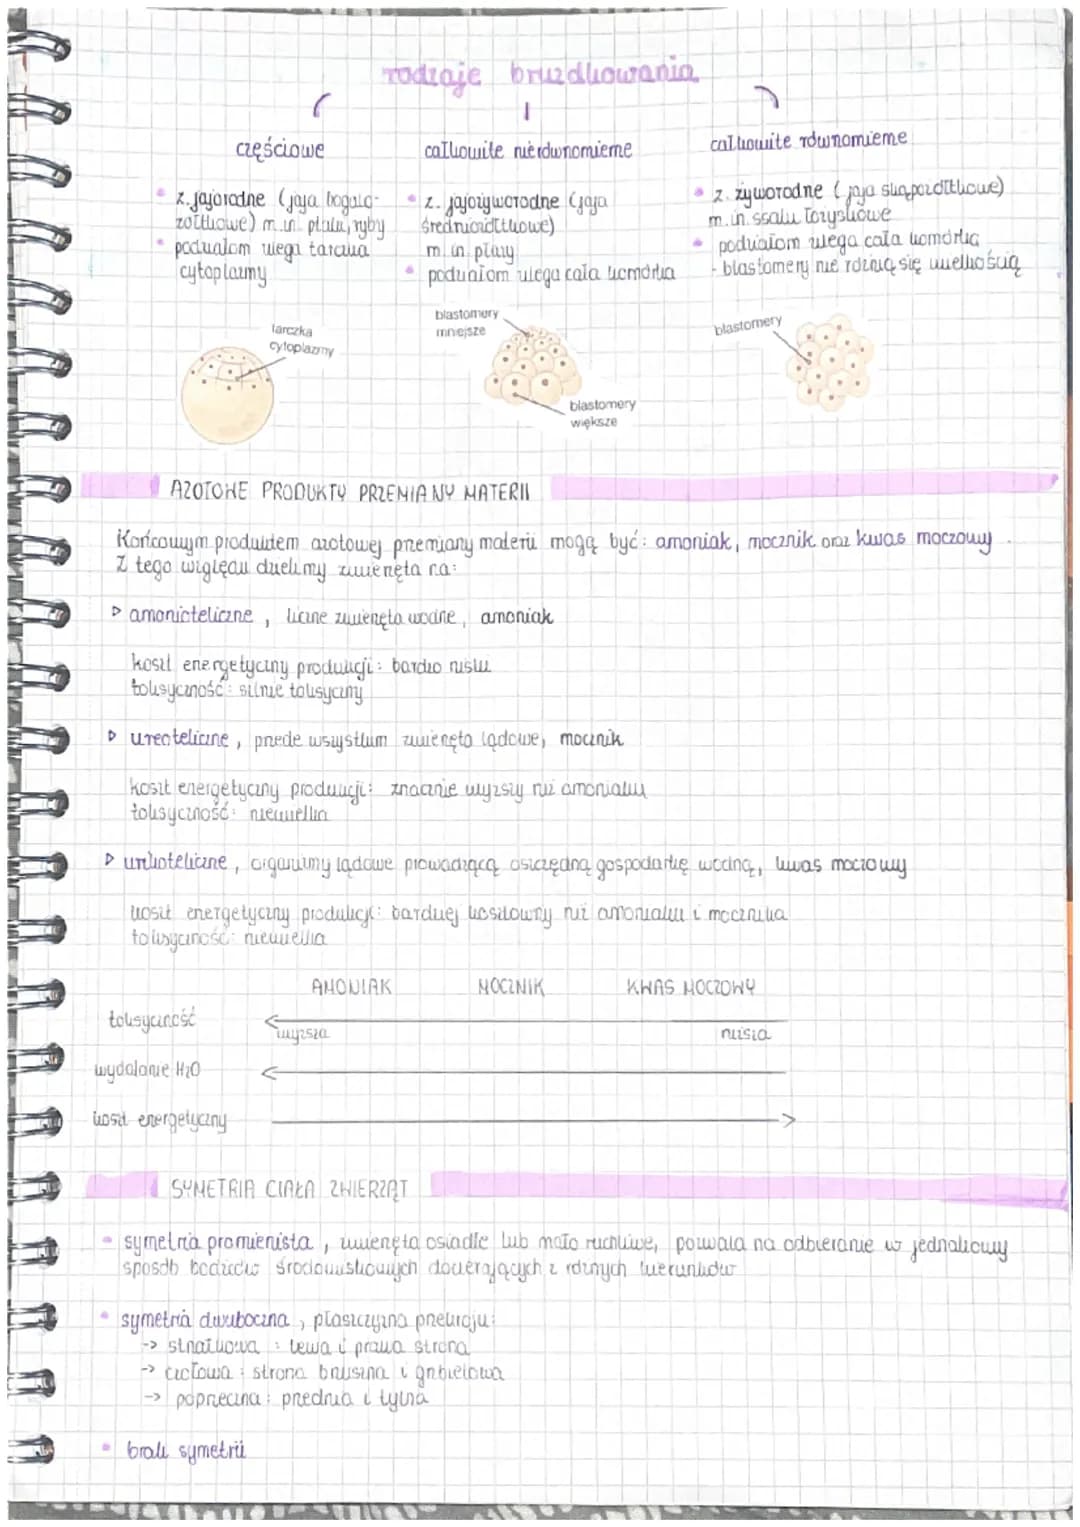 rodzaje bruzdkowania
częściowe
z. jajorodne (jaja bogato-
żółtkowe) m.in. ptaki, ryby
podziałom ulega tarczka
cytoplazmy
tarczka
cytoplazmy
całkowite nierównomierne
z. jajożyworodne (jaja
średniożółtkowe)
m.in. płazy
podziałom ulega cała komórka
blastomery
mniejsze
blastomery
większe
całkowite równomierne
z. żyworodne (jaja skąpożółtkowe)
m.in. ssaki łożyskowe
podziałom ulega cała komórka
- blastomery nie różnią się wielkością
blastomery
AZOTOWE PRODUKTY PRZEMIANY MATERII
Końcowym produktem azotowej przemiany materii mogą być: amoniak, mocznik oraz kwas moczowy.
Z tego względu dzielimy zwierzęta na:
▷ amonioteliczne, liczne zwierzęta wodne, amoniak
koszt energetyczny produkcji: bardzo niski
toksyczność: silnie toksyczny
▷ ureoteliczne, przede wszystkim zwierzęta lądowe, mocznik
koszt energetyczny produkcji: znacznie wyższy niż amoniaku
toksyczność: niewielka
▷ urikoteliczne, organizmy lądowe prowadzącą oszczędną gospodarkę wodną, kwas moczowy
koszt energetyczny produkcji: bardziej kosztowny niż amoniaku i mocznika
toksyczność: niewielka
AMONIAK MOCZNIK KWAS MOCZOWY
toksyczność
wyższa niższa
wydalanie H₂O
koszt energetyczny
SYMETRIA CIAŁA ZWIERZĄT
symetria promienista, zwierzęta osiadłe lub mało ruchliwe, pozwala na odbieranie w jednakowy
sposób bodźców środowiskowych docierających z różnych kierunków
symetria dwuboczna, płaszczyzna przekroju:
-> strzałkowa: lewa i prawa strona
-> czołowa: strona brzuszna i grzbietowa
-> poprzeczna: przednia i tylna
brak symetrii